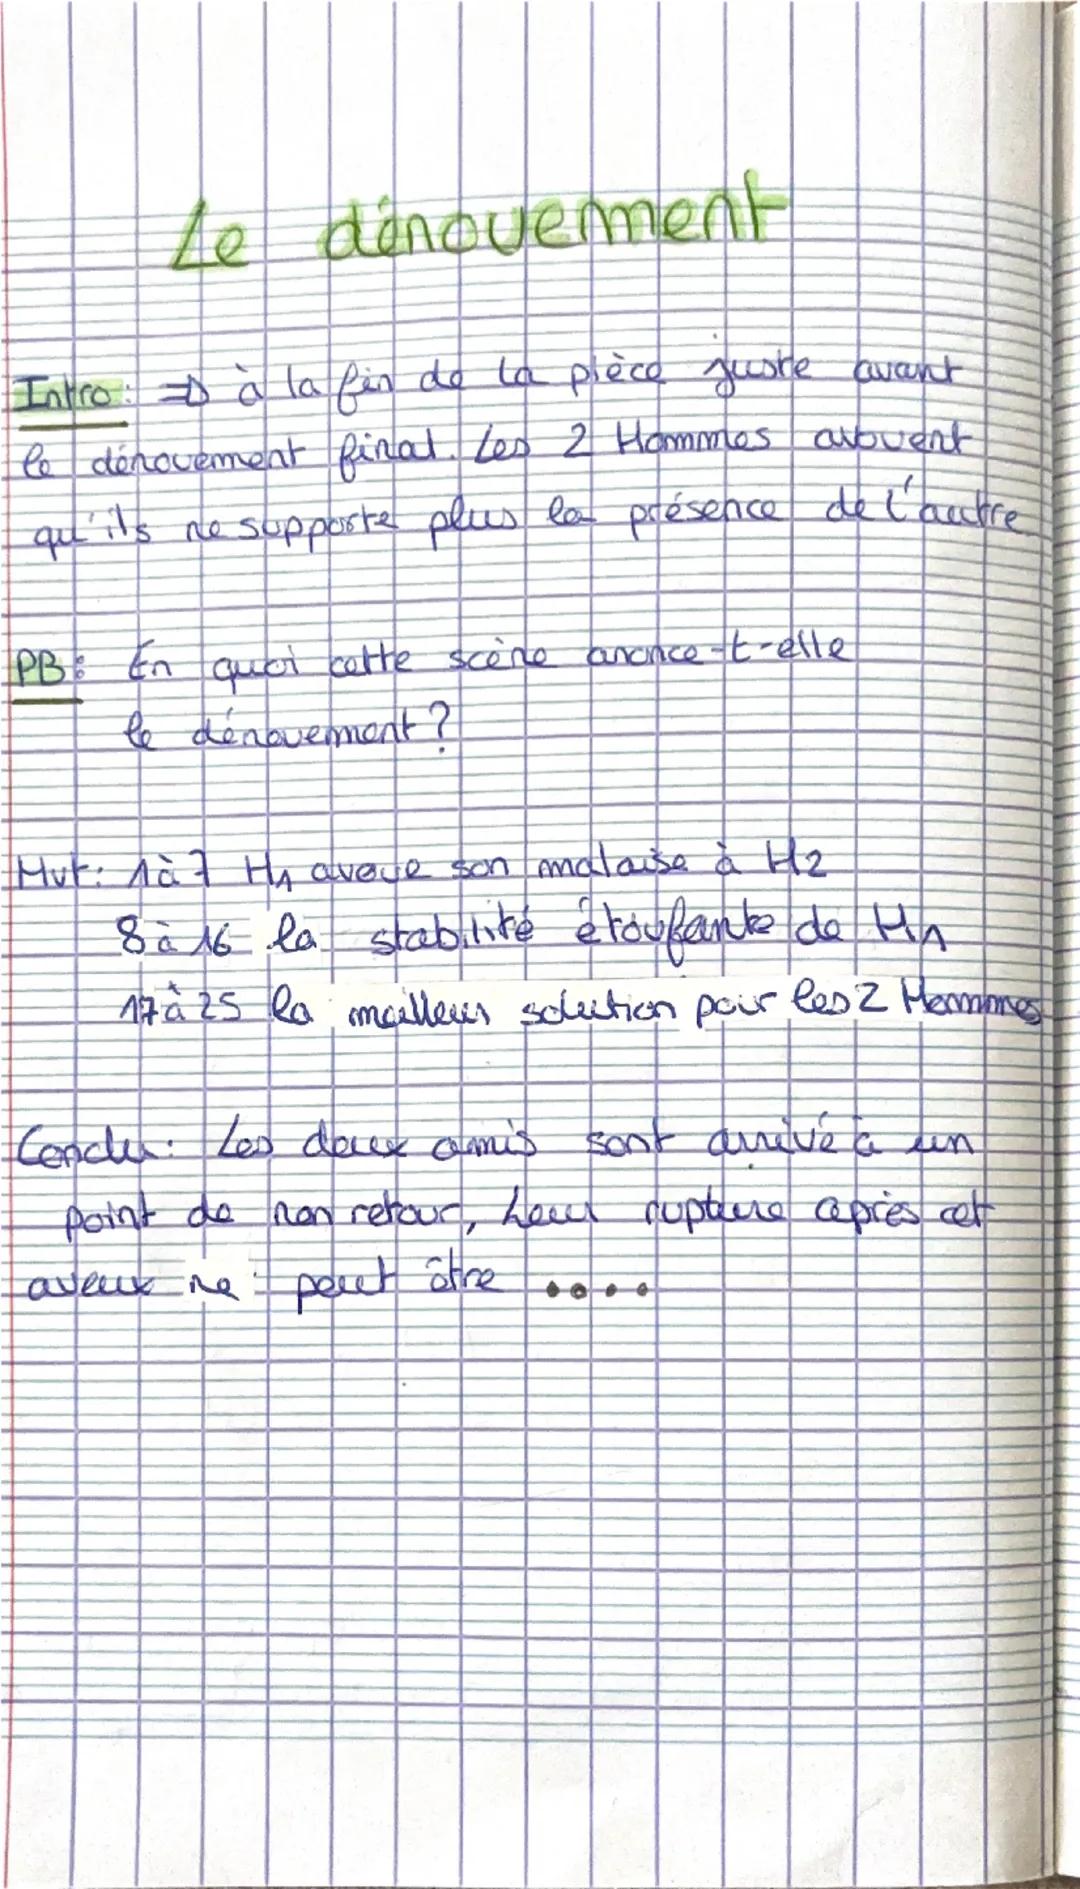 Le dénouement
Intro: => à la fin de la pièce juste avant
le dénouement final. Les 2 Hommes avouent
qu'ils ne supporte plus la présence de l'autre
PB: En quoi cette scène anonce-t-elle
le dénouement?
Mvt: 1 à 7 H1 avoue son malaise à H2
8 à 16 la stabilité étoufante de H1
17 à 25 la meilleur solution pour les 2 Hommes
Conclu: Les deux amis sont arrivé à un
point de non retour, Leur rupture après cet
aveux ne peut être ....